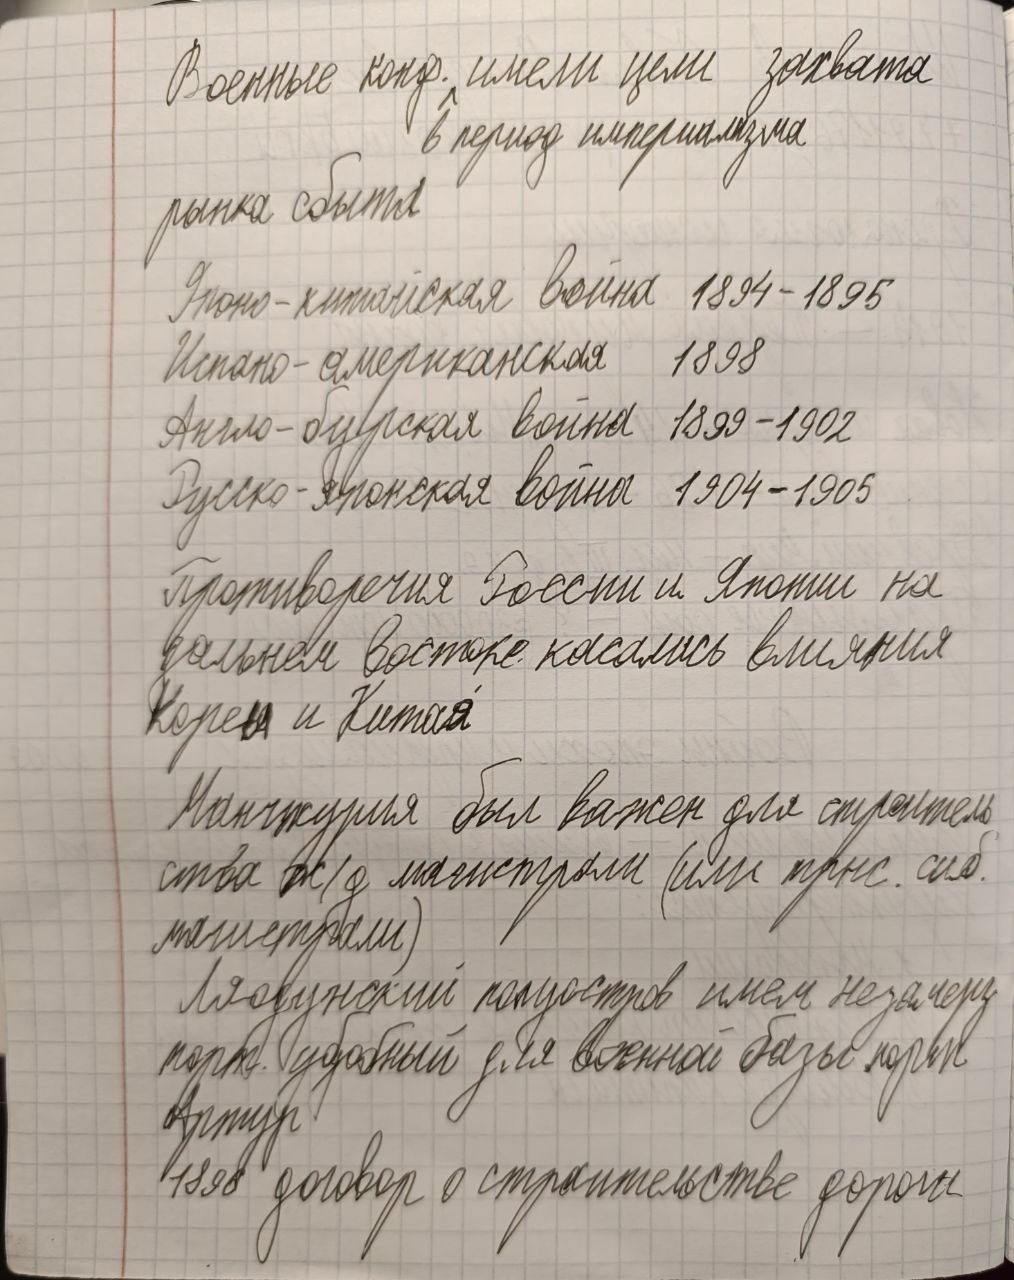 Военные конф. имели цели захвата
в период империализма
рынка сбыта
Японо-китайская война 1894-1895
Испано-американская 1898
Англо-бурская война 1899-1902
Русско-японская война 1904-1905
Противоречия России и Японии на
дальнем востоке касались влияния
Кореи и Китая
Манчжурия был важен для строитель
ства ж/д магистрали (или трнс. сиб.
магистрали)
Ляодунский полуостров имел незамерз
порт. удобный для военной базы порт
Артур
договор о строительстве дороги